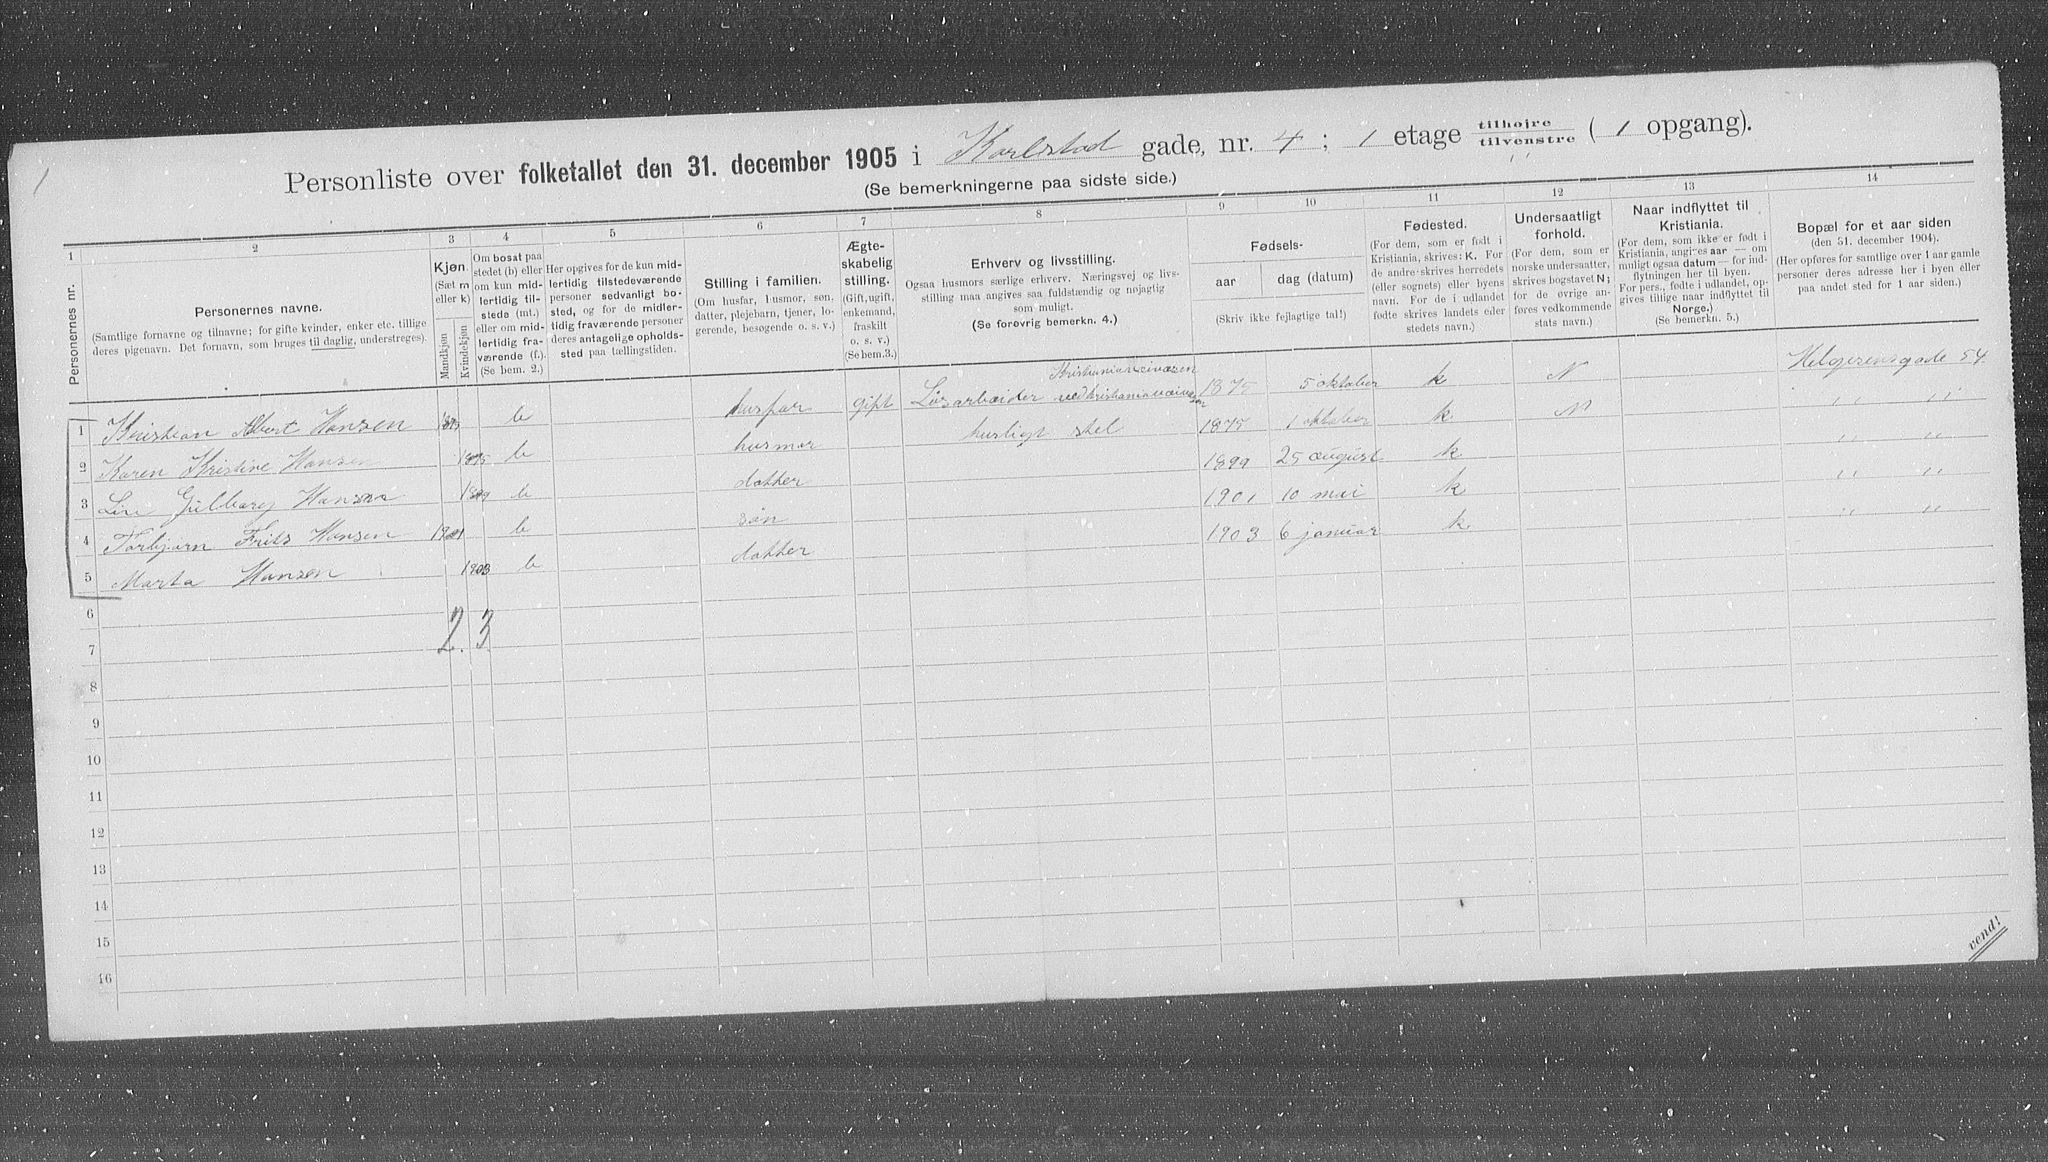 1
Personliste over folketallet den 31. december 1905 i Karlstad gade, nr. 4; 1 etage tilhøjre tilvenstre (1 opgang).
(Se bemerkningerne paa sidste side.)
1 2 3 4 5 6 7 8 9 10 11 12 13 14
Personernes nr.
Personernes navne.
(Samtlige fornavne og tilnavne; for gifte kvinder, enker etc. tillige
deres pigenavn. Det fornavn, som bruges til daglig, understreges).
Kjøn.
(Sæt m
eller k)
Mandkjøn
Kvindekjøn
Om bosat paa
stedet (b) eller
om kun mid-
lertidig til-
stede (mt.)
eller om mid-
lertidig fra-
værende (f.).
(Se bem. 2.)
Her opgives for de kun mid-
lertidig tilstedeværende
personer sedvanligt bo-
sted, og for de midler-
tidig fraværende personer
deres antagelige opholds-
sted paa tællingstiden.
Stilling i familien.
(Om husfar, husmor, søn,
datter, plejebarn, tjener, lo-
gerende, besøgende o. s. v.)
Ægte-
skabelig
stilling.
(Gift, ugift,
enkemand,
fraskilt
o. s. v.)
(Se bem. 3.)
Erhverv og livsstilling.
Ogsaa husmors særlige erhverv. Næringsvej og livs-
stilling maa angives saa fuldstændig og nøjagtig
som muligt.
(Se forøvrig bemerkn. 4.)
Fødsels-
aar
dag (datum)
(Skriv ikke fejlagtige tal!)
Fødested.
(For dem, som er født i
Kristiania, skrives: K. For
de andre skrives herredets
(eller sognets) eller byens
navn. For de i udlandet
fødte skrives landets eller
stedets navn.)
Undersaatligt
forhold.
(For dem, som er
norske undersaatter,
skrives bogstavet N;
for de øvrige an-
føres vedkommende
stats navn.)
Naar indflyttet til
Kristiania.
(For dem, som ikke er født i
Kristiania, angives aar — om
muligt ogsaa datum — for ind-
flytningen her til byen.
For pers., født i udlandet, op-
gives tillige naar indflyttet til
Norge.)
(Se bemerkn. 5.)
Bopæl for et aar siden
(den 31. december 1904).
(Her opføres for samtlige over 1 aar gamle
personer deres adresse her i byen eller
paa andet sted for 1 aar siden.)
1 Kristian Albert Hansen 1875 b husfar gift Løsarbeider ved Kristianiaveivæsen 1875 5 oktober k N Helgesensgade 54
2 Karen Kristine Hansen 1875 b husmor husligt stel 1875 1 oktober k N " "
3 Hansen 1899 b datter 1899 25 august k " "
4 Torbjørn Frits Hansen 1901 b søn 1901 10 mai k " "
5 Marta Hansen 1903 b datter 1903 6 januar k " "
6
2. 3
7
8
9
10
11
12
13
14
15
16
vend!